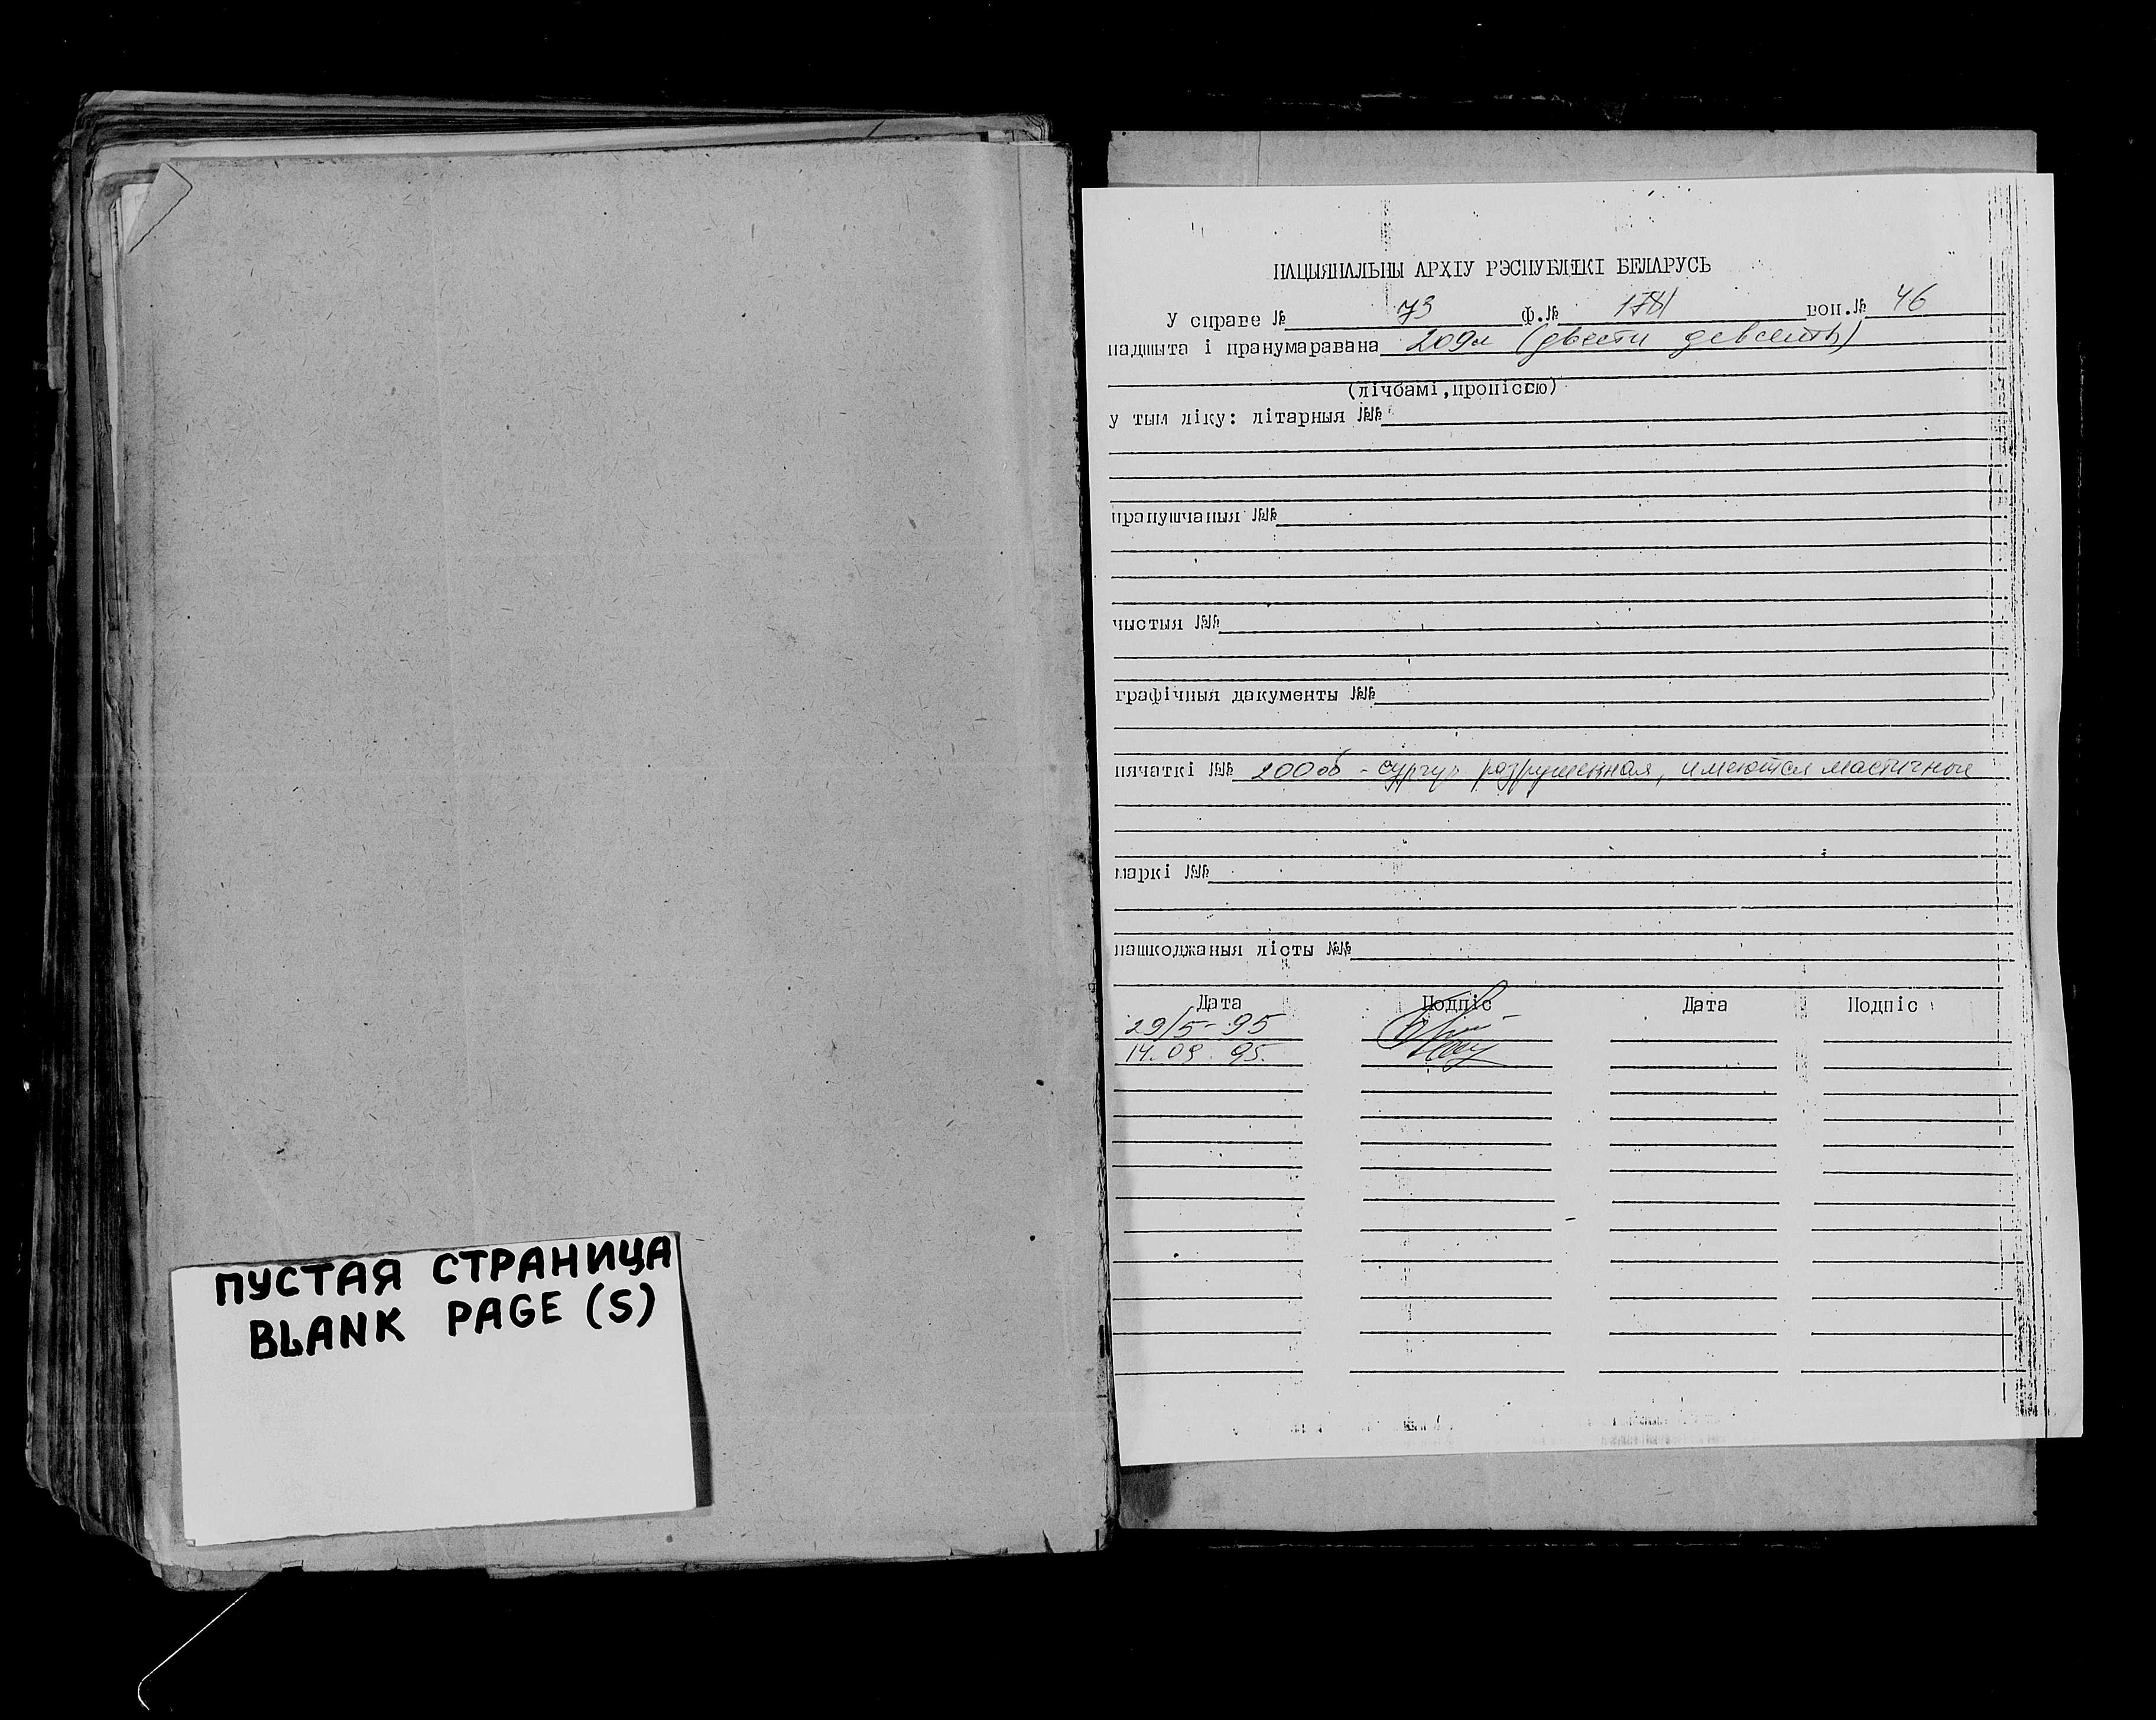 ПУСТАЯ СТРАНИЦА
BLANK PAGE (S)
НАЦЫЯНАЛЬНЫ АРХІУ РЭСПУБЛІКІ БЕЛАРУСЬ
У справе № 73 ф.№ 1781 воп.№ 46
падшыта і пранумаравана 209л (двести девсеть)
(лічбамі,пропіссю)
у тым ліку: літарныя №№
прапушчаныя №№
чыстыя №№
графічныя дакументы №№
пячаткі №№ 200об - сургуч разрушенная, имеются мастичные
маркі №№
пашкоджаныя лісты №№
Дата Подпіс Дата Подпіс
29/5-95
14.09.95.